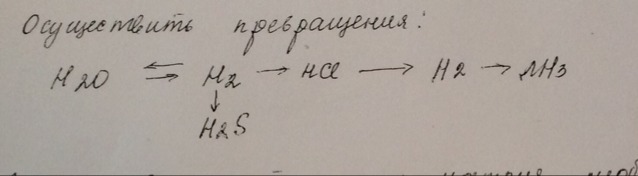 Осуществить превращения:
H2O ⇄ H2 → HCl → H2 → NH3
↓
H2S